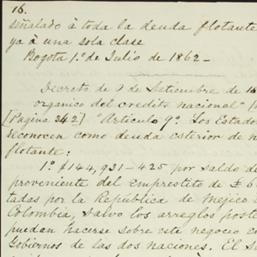 16.
señalado à toda la deuda flotante
ya à una sola clase
Bogota 1º de Julio de 1862_
Decreto de 9 de Setiembre de 18
organico del credito nacional"
[Pagina 242] "Articulo 9º Los Estado
reconocen como deuda exterior de
flotante:
1º $144,931-425 por saldo de
proveniente del emprestito de £ 6
tadas por la República de Mejico
Colombia, salvo los arreglos poste
puedan hacerse sobre este negocio e
Gobiernos de las dos naciones. El S